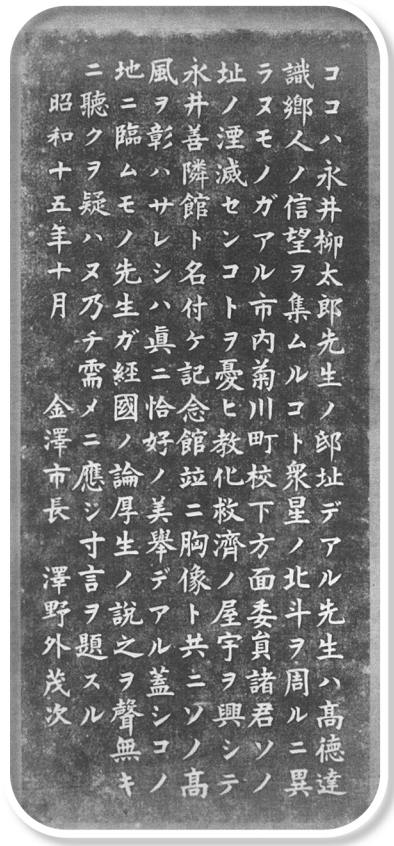 ココハ永井柳太郎先生ノ邸址デアル先生ハ高德達
識鄕人ノ信望ヲ集ムルコト衆星ノ北斗ヲ周ルニ異
ラヌモノガアル市内菊川町校下方面委員諸君ソノ
址ノ湮滅センコトヲ憂ヒ教化救濟ノ屋宇ヲ興シテ
永井善隣館ト名付ケ記念館竝ニ胸像ト共ニソノ高
風ヲ彰ハサレシハ眞ニ恰好ノ美擧デアル蓋シコノ
地ニ臨ムモノ先生ガ経國ノ論厚生ノ說之ヲ聲無キ
ニ聽クヲ疑ハヌ乃チ需メニ應ジ寸言ヲ題スル
昭和十五年十月 金澤市長 澤野外茂次